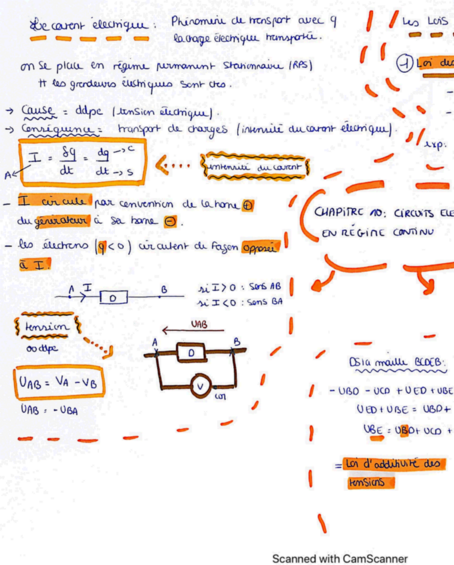 Le courant électrique : Phénomène de transport avec q
la charge électrique transportée.
on se place en régime permanent stationnaire (RPS)
tt les grandeurs électriques sont ctes.
→ Cause = ddpe (tension électrique).
→ Conséquence = transport de charges (intensité du courant électrique).
I = δq/dt = dq/dt → C → s
A
intensité du courant
- I circule par convention de la borne ⊕
du générateur à sa borne ⊖.
- les électrons (q<0) circulent de façon opposée
à I
A I D B
si I > 0 : sens AB
si I < 0 : sens BA
tension
ou ddpe
UAB
A D B
V
COM
UAB = VA - VB
UAB = - UBA
Les Lois
1 Loi des
-
-
exp.
CHAPITRE 10: CIRCUITS ELE
EN RÉGIME CONTINU
Ds la maille BCDEB:
- UBD - UCD + UED + UBE
UED + UBE = UBD +
UBE = UBD + UCD +
= Loi d'additivité des
tensions
Scanned with CamScanner